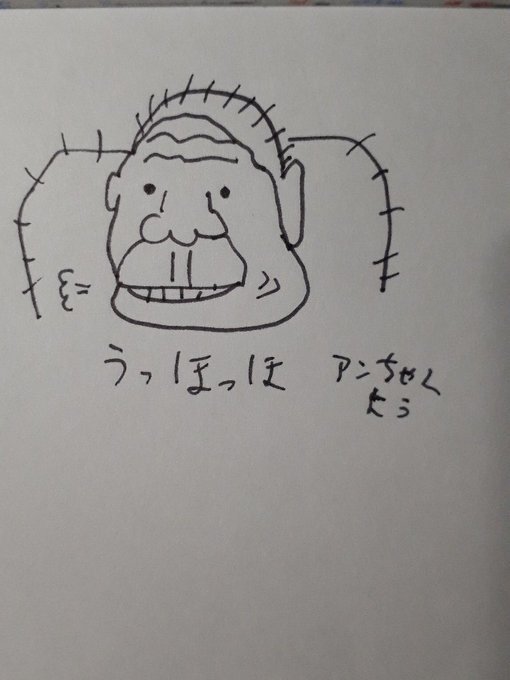 うっほっほ
アンちゃく
よう